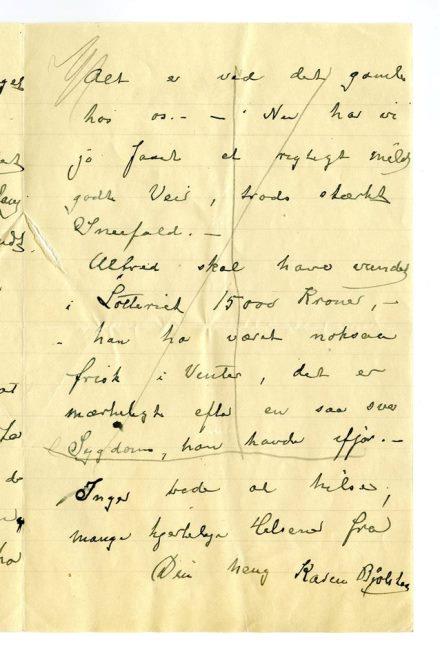 Alt er ved det gamle
hos os. — Nu har vi
jo faaet et rigtigt mildt
godt Veir, trods stærkt
Sneefald. —
Alfred skal have vundet
i Lotteriet 15000 Kroner, —
han har været noksaa
frisk i Vinter, det er
mærkeligt efter en saa svær
Sygdom, han havde ifjor. —
Inger bede at hilse,
mange hjertelige Helsener fra
Din heng Karen Bjølstad